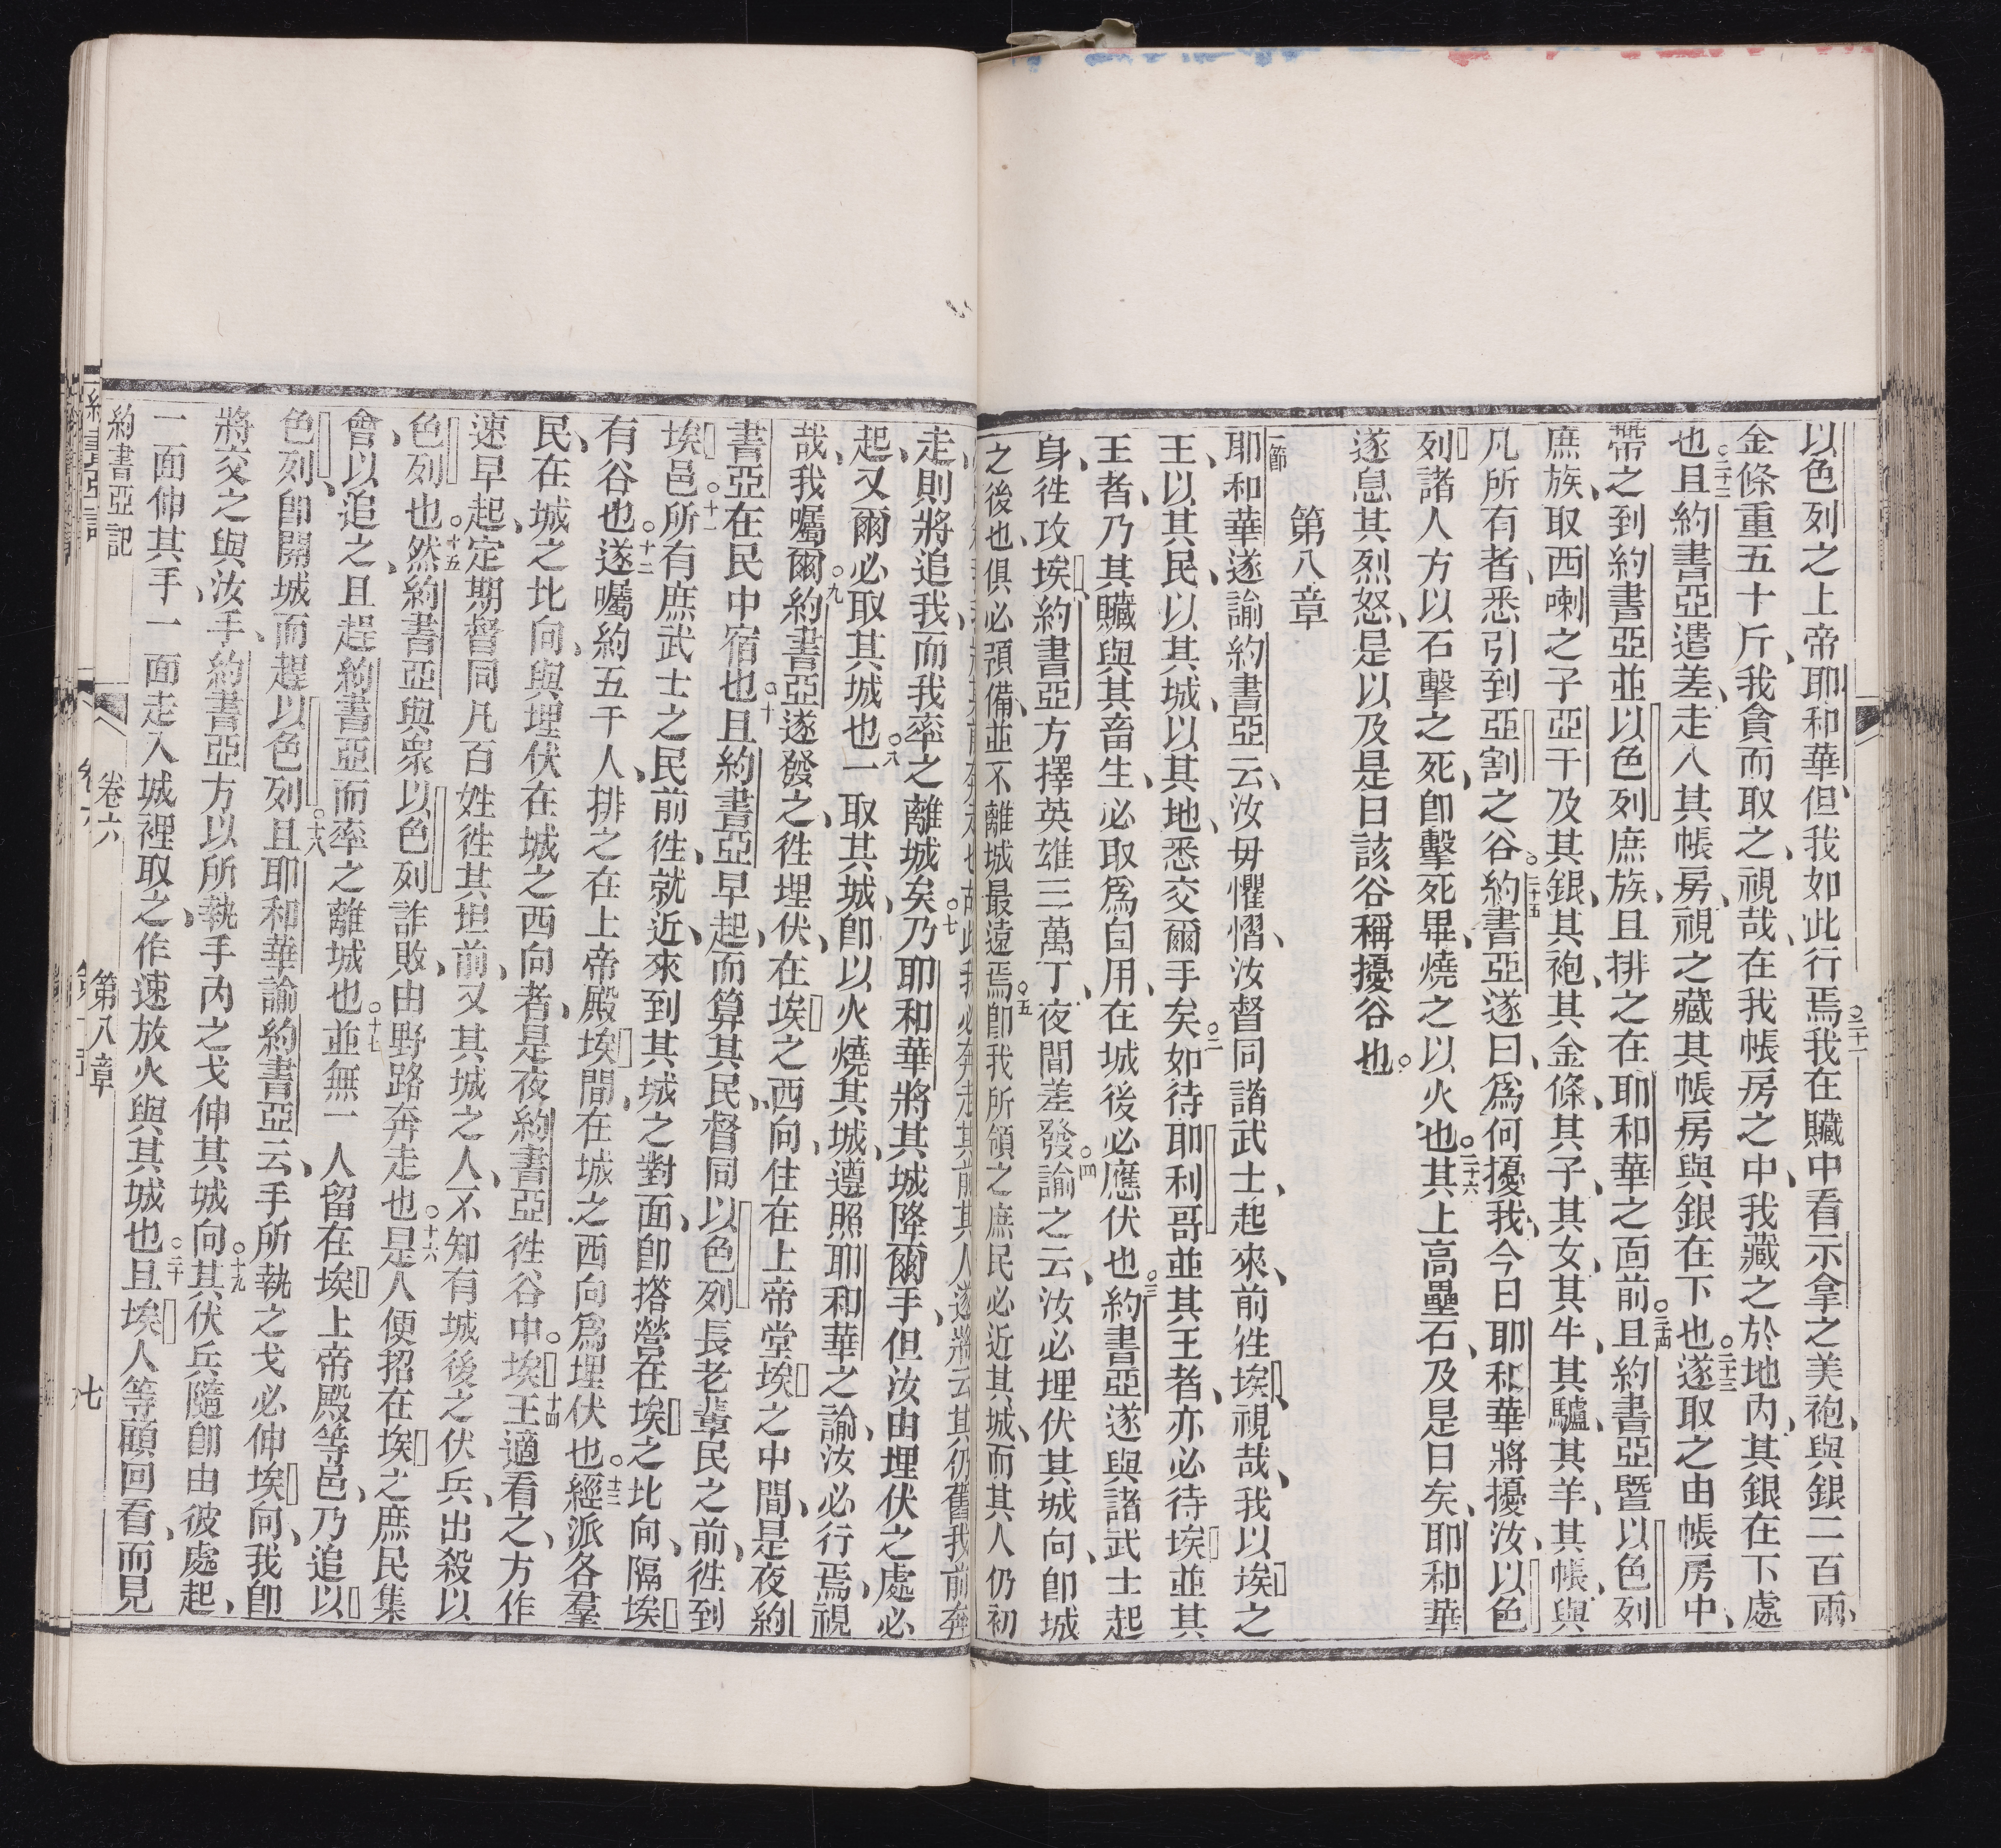 以色列之上帝耶和華但我如此行焉。二十一我在贜中看示拿之美袍與銀二百兩、
金條重五十斤、我貪而取之、視哉、在我帳房之中、我藏之於地內、其銀在下處
也。二十二且約書亞遣差、走入其帳房、視之藏其帳房與銀在下也。二十三遂取之由帳房中、
帶之到約書亞並以色列庶族、且排之在耶和華之面前。二十四且約書亞暨以色列
庶族、取西喇之子亞干及其銀、其袍、其金條、其子、其女、其牛、其驢、其羊、其帳與
凡所有者、悉引到亞割之谷。二十五約書亞遂曰、爲何擾我、今日耶和華將擾汝、以色
列諸人方以石擊之死、卽擊死畢、燒之以火也。二十六其上高壘石、及是日矣、耶和華
遂息其烈怒、是以及是日該谷稱擾谷也。
第八章
一節耶和華遂諭約書亞云、汝毋懼慴、汝督同諸武士、起來、前徃埃、視哉、我以埃之
王、以其民、以其城、以其地、悉交爾手矣。二如待耶利哥並其王者、亦必待埃並其
王者、乃其贜與其畜生、必取爲自用、在城後必應伏也。三約書亞遂與諸武士起
身、徃攻埃、約書亞方擇英雄三萬丁、夜間差發。四諭之云、汝必埋伏其城向、卽城
之後也、俱必預備、並不離城最遠焉。五卽我所領之庶民必近其城、而其人仍初
走、則將追我、而我率之離城矣。七乃耶和華將其城降爾手、但汝由埋伏之處必
起、又爾必取其城也。八一取其城、卽以火燒其城、遵照耶和華之諭、汝必行焉、視
哉、我囑爾。九約書亞遂發之、徃埋伏、在埃之西向、住在上帝堂埃之中間、是夜約
書亞在民中宿也。十且約書亞早起、而算其民、督同以色列長老輩民之前、徃到
埃邑。十一所有庶武士之民前徃、就近、來到其城之對面、卽搭營在埃之北向、隔埃
有谷也。十二遂囑約五千人、排之在上帝殿埃間、在城之西向爲埋伏也。十三經派各羣
民、在城之北向、與埋伏在城之西向者、是夜約書亞徃谷中。十四埃王適看之、方作
速早起、定期督同凡百姓徃其坦前、又其城之人、不知有城後之伏兵、出殺以
色列也。十五然約書亞與衆以色列詐敗、由野路奔走也。十六是人便招在埃之庶民集
會、以追之、且趕約書亞而率之離城也。十七並無一人留在埃上帝殿等邑、乃追以
色列、卽開城而趕以色列。十八且耶和華諭約書亞云、手所執之戈必伸埃向、我卽
將交之與汝手、約書亞方以所執手內之戈伸其城向。十九其伏兵隨卽由彼處起、
一面伸其手、一面走入城裡取之、作速放火與其城也。二十且埃人等顧回看、而見
約書亞記 卷六 第八章 七